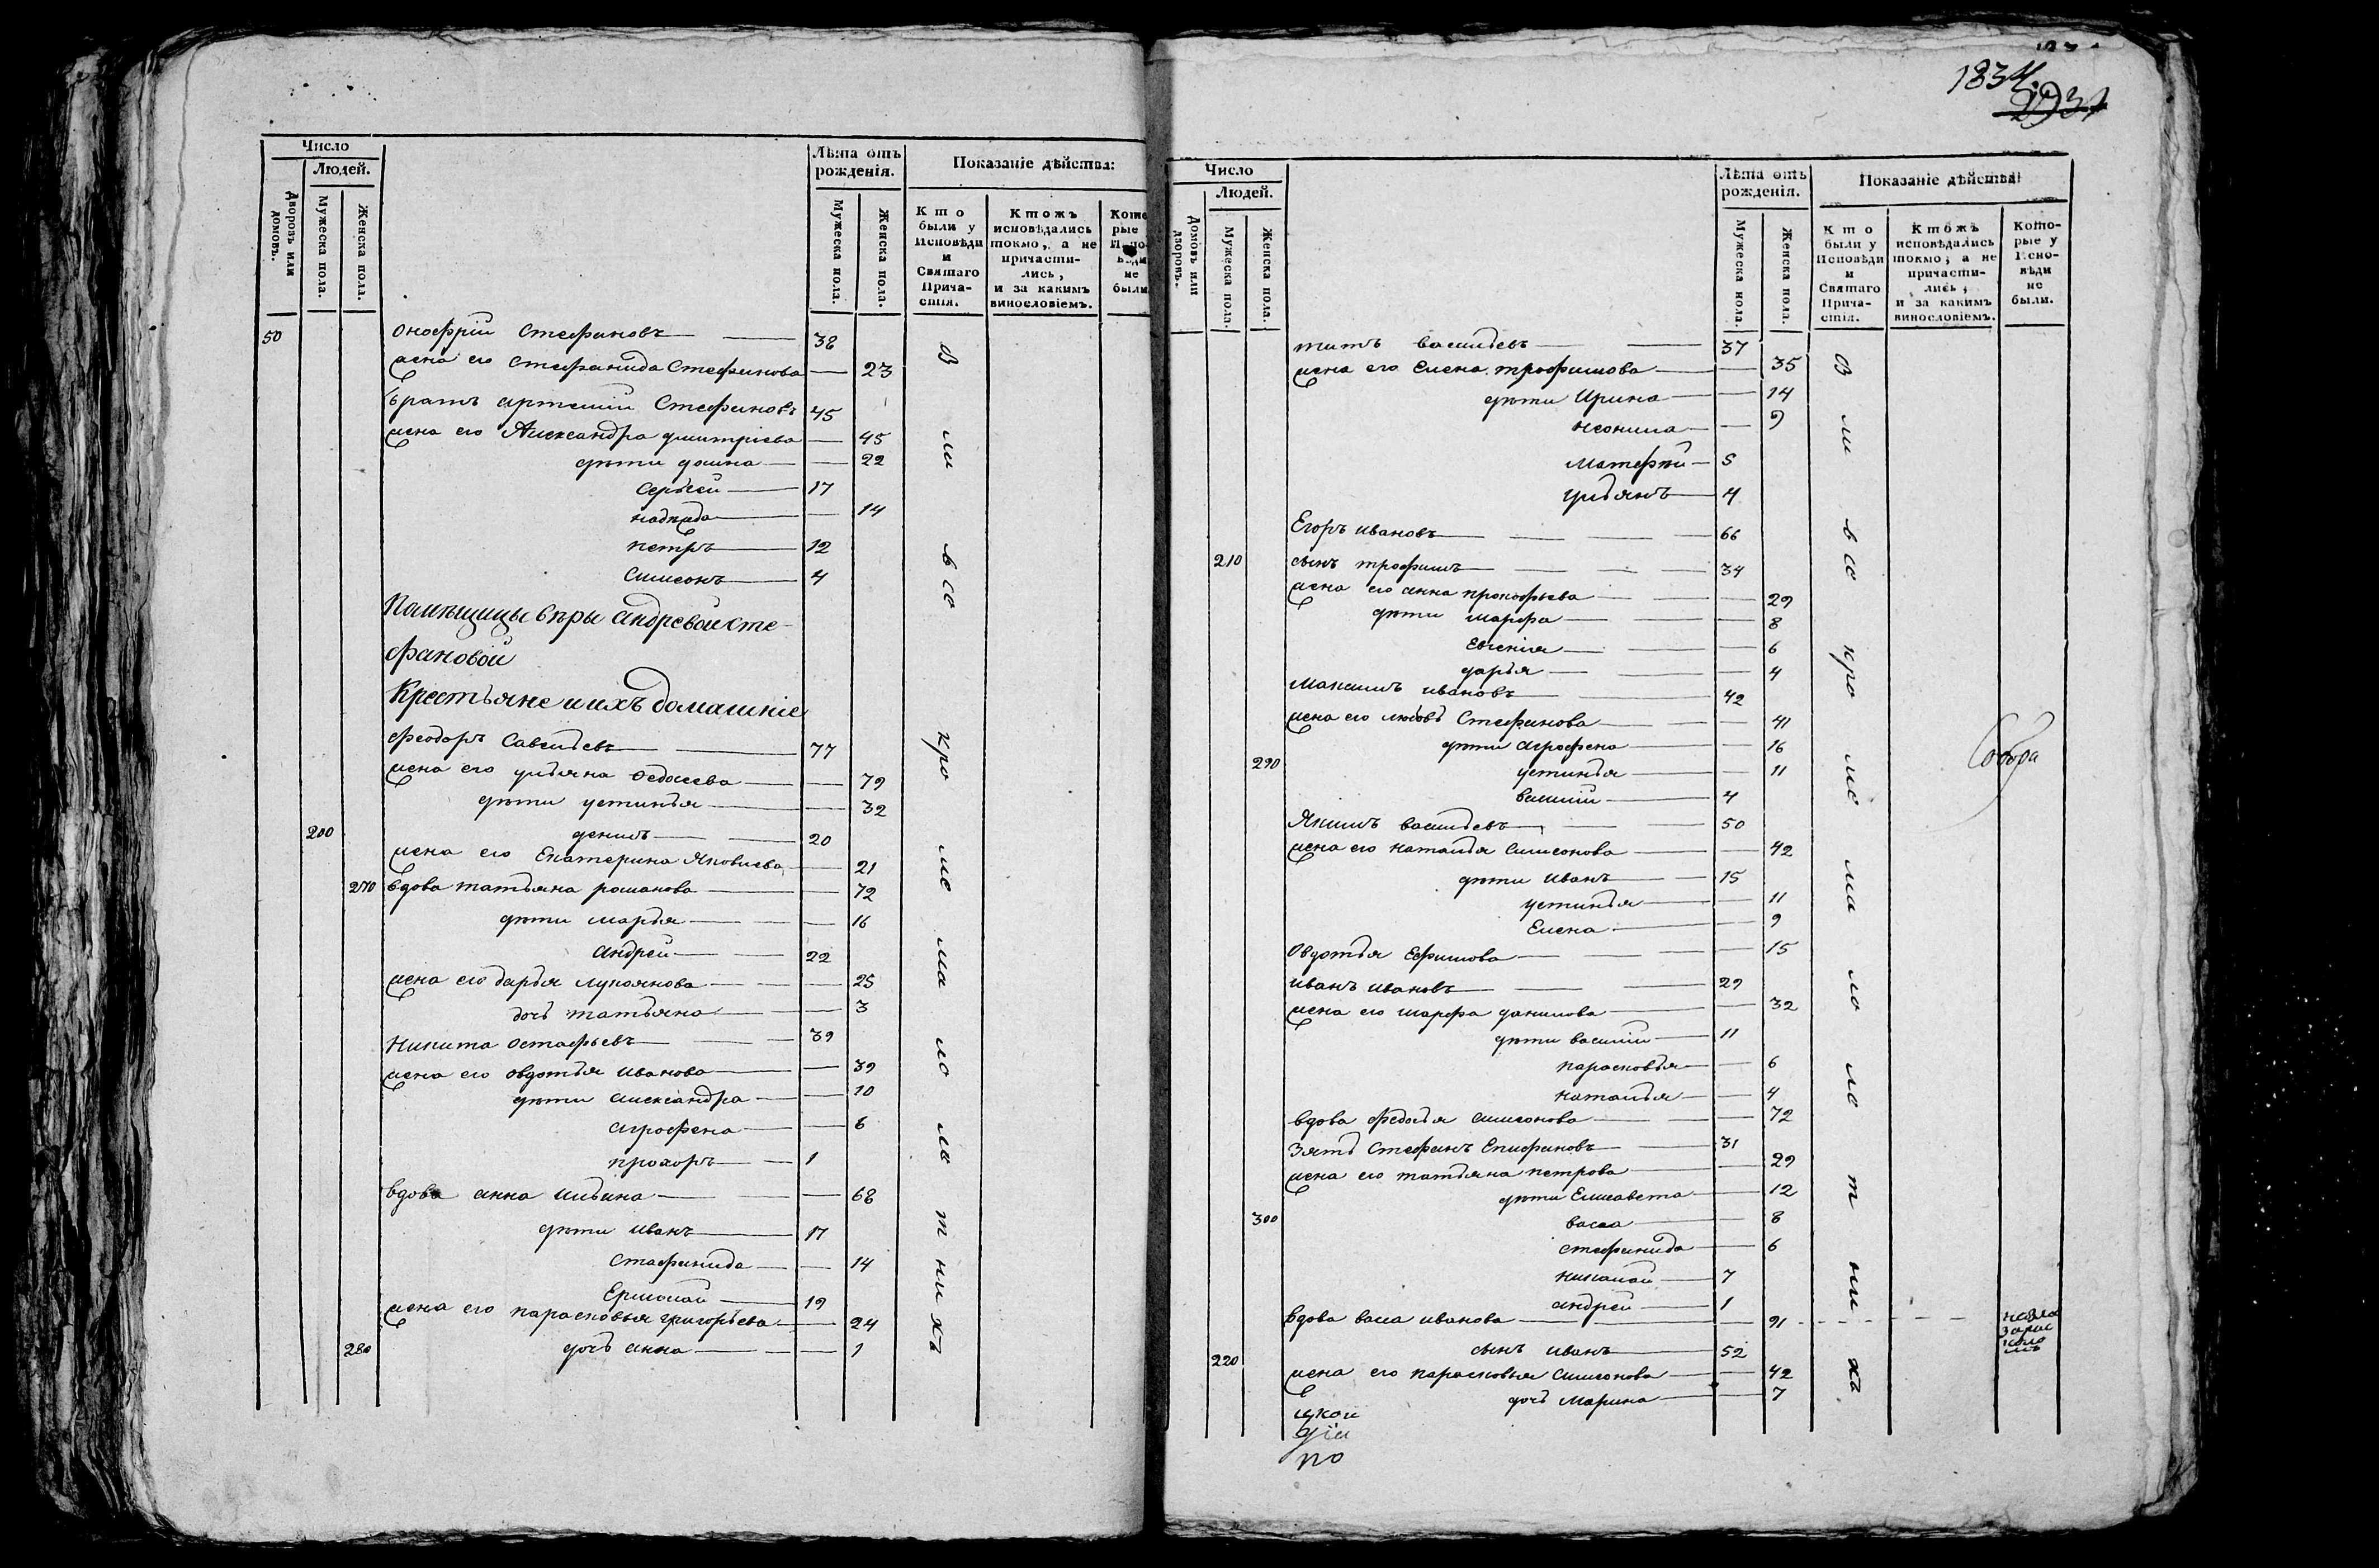 Число
Людей.
Дворовъ или домовъ.
Мужеска пола.
Женска пола.
Лѣта отъ рожденія.
Мужеска пола.
Женска пола.
Показаніе дѣйства:
Кто были у Исповѣди и Святаго Причастія.
Ктожъ исповѣдались токмо, а не причастились, и за какимъ винословіемъ.
Которые у Исповѣди не были
50 Онофрій Стефановъ 38
жена его Стефанида Стефанова 23
братъ артемій Стефановъ 45
жена его Александра дмитріева 45
дѣти домна 22
Сергѣй 17
надѣжда 14
петръ 12
Симеонъ 4
Помѣщицы вѣры Андревой Сте-
фановой
Крестьяне и ихъ домашніе
Феодоръ Савельевъ 77
жена его ульяна 79
дѣти устинья 32
200 денисъ 20
жена его Екатерина Яковлева 21
270 вдова татьяна романова 72
дѣти марья 16
Андрей 22
жена его дарья лукоянова 25
дочь татьяна 3
Никита остафьевъ 39
жена его овдотья иванова 39
дѣти александра 10
агрофена 6
прохоръ 1
вдова анна ильина 68
дѣти иванъ 17
Стефанида 14
Ермолай 19
жена его парасковья григорьева 24
280 дочь анна 1
В ли всо кро ме ма ло лѣ т ни хъ
1834.
Число
Людей.
Домовъ или дворовъ.
Мужеска пола.
Женска пола.
Лѣта отъ рожденія.
Мужеска пола.
Женска пола.
Показаніе дѣйства:
Кто были у Исповѣди и Святаго Причастія.
Ктожъ исповѣдались токмо, а не причастились, и за какимъ винословіемъ.
Которые у Исповѣди не были.
титъ васильевъ 37
жена его Елена трофимова 35
дѣти Ирина 14
неонила 9
матефѣй 5
ульянъ 4
Егоръ ивановъ 66
210 сынъ трофимъ 34
жена его анна прокофьева 29
дѣти марфа 8
Евгенія 6
дарья 4
Максимъ ивановъ 42
жена его любовь Стефанова 41
дѣти агрофена 16
290 устинья 11
василій 4
Якимъ васильевъ 50
жена его наталья Симеонова 42
дѣти иванъ 15
устинья 11
Елена 9
Овдотья Ефимова 15
иванъ ивановъ 29
жена его марфа данилова 32
дѣти василій 11
парасковья 6
наталья 4
вдова федосья симеонова 72
Зять Стефанъ Епифановъ 31
жена его татьяна петрова 29
дѣти Елисавета 12
300 васса 8
стефанида 6
николай 7
андрей 1
вдова васса иванова 91
220 сынъ иванъ 52
жена его парасковья симеонова 42
дочь марина 7
В ли всо кро ме ма ло лѣ т ни хъ
Собора
по